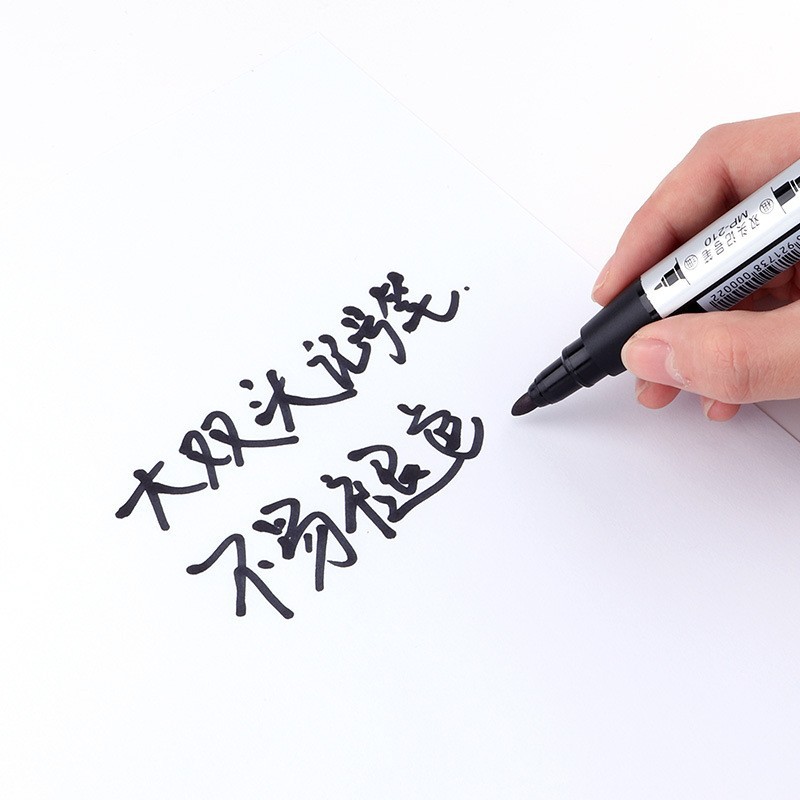 大双头记号笔.
不易褪色
双头记号笔
MP-210
6921738 000022